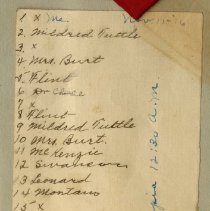 1 X
Nov. 11
2. Mildred Tuttle
3. X
4. Mrs. Burt
5. Flint
6
7. X
8 Flint
9 Mildred Tuttle
10 Mrs. Burt.
11 McKenzie
12 Swanson
13 Leonard
14 Montano
15 X
12:30 A.M.